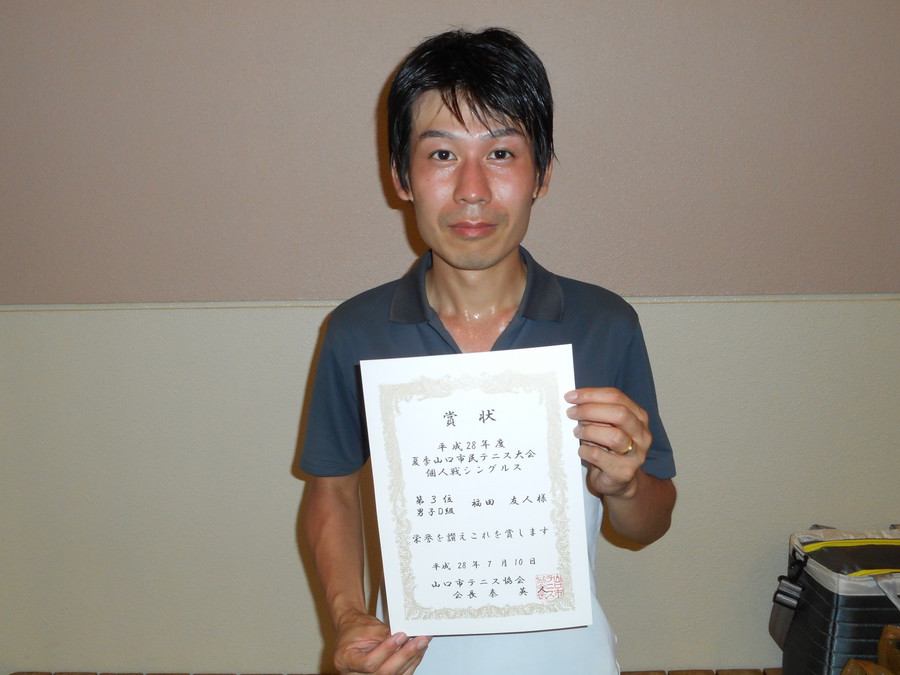 賞状
平成28年度
夏季山口市民テニス大会
個人戦シングルス
第3位 福田 友人様
男子D級
栄誉を讃えこれを賞します
平成28年7月10日
山口市テニス協会
会長 秦 英